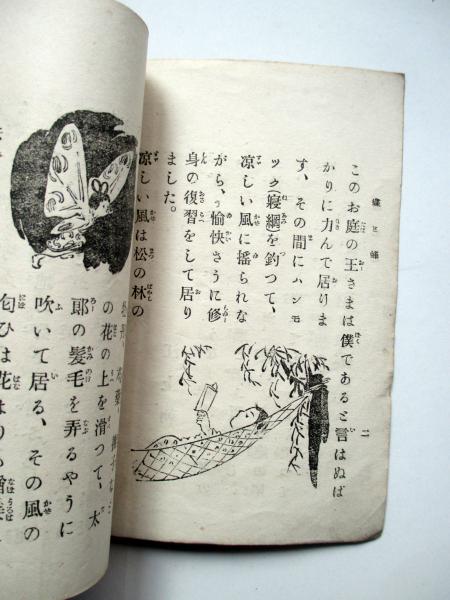 蝶と蜂
二
このお庭の王さまは僕であると言はぬば
かりに力んで居りま
す、その間にハンモ
ック(寝網)を釣つて、
凉しい風に揺られな
がら、愉快さうに修
身の復習をして居り
ました。
凉しい風は松の林の
の花の上を滑つて、太
郎の髪毛を弄るやうに
吹いて居る、その風の
匂ひは花よりも